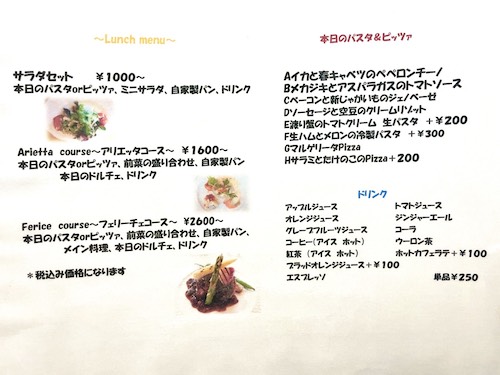 ～Lunch menu～
サラダセット　￥1000～
本日のパスタorピッツァ、ミニサラダ、自家製パン、ドリンク
Arietta course～アリエッタコース～　￥1600～
本日のパスタorピッツァ、前菜の盛り合わせ、自家製パン
本日のドルチェ、ドリンク
Ferice course～フェリーチェコース～　￥2600～
本日のパスタorピッツァ、前菜の盛り合わせ、自家製パン、
メイン料理、本日のドルチェ、ドリンク
＊税込み価格になります
本日のパスタ&ピッツァ
Aイカと春キャベツのペペロンチーノ
Bメカジキとアスパラガスのトマトソース
Cベーコンと新じゃがいものジェノベーゼ
Dソーセージと空豆のクリームリゾット
E渡り蟹のトマトクリーム　生パスタ　+￥200
F生ハムとメロンの冷製パスタ　+￥300
GマルゲリータPizza
HサラミとたけのこPizza+200
ドリンク
アップルジュース
オレンジジュース
グレープフルーツジュース
コーヒー(アイス　ホット)
紅茶　(アイス　ホット)
ブラッドオレンジジュース+￥100
エスプレッソ
トマトジュース
ジンジャーエール
コーラ
ウーロン茶
ホットカフェラテ+￥100
単品￥250